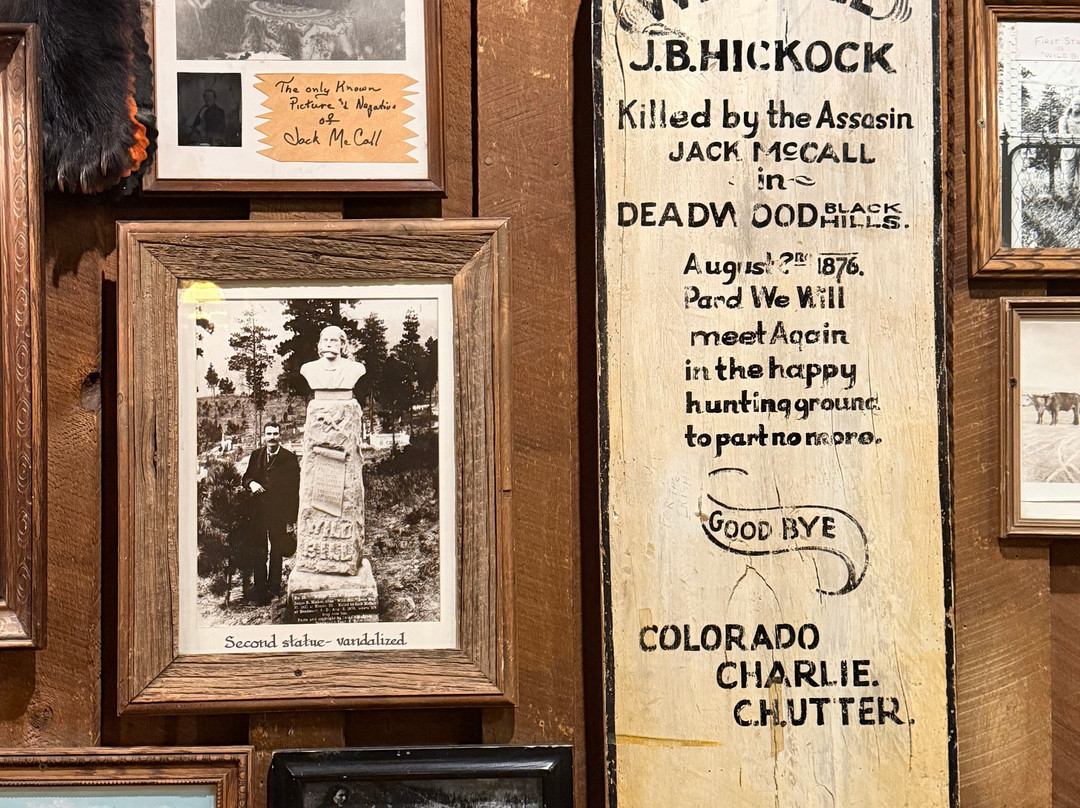 The only Known
Picture & Negative
of
Jack McCall
WILD
BILL
Second statue- vandalized
J.B.HICKOCK
Killed by the Assasin
JACK McCALL
in
DEADWOOD BLACK HILLS.
August 2ND 1876.
Pard We Will
meet Again
in the happy
hunting ground
to part no more.
GOOD BYE
COLORADO
CHARLIE.
C.H.UTTER.
FIRST
"WILD